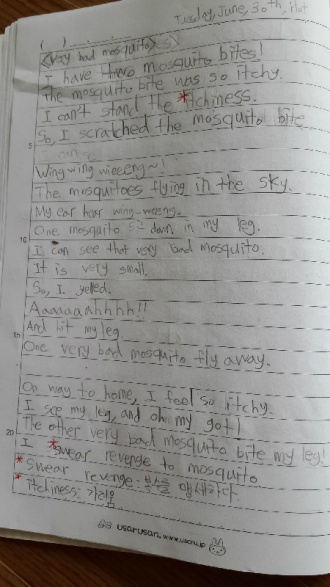 Tuesday, June, 30th, Hot
( )
<Very bad mosquitoes>
I have two mosquito bites!
The mosquito bite was so itchy.
I can't stand the *itchiness.
5
So, I scratched the mosquito bite
Wing wing
The mosquitoes flying in the sky.
My ear hear wing-weeng.
10
One mosquito sit down in my leg.
I can see that very bad mosquito.
It is very small.
So, I yelled.
Aaaaaaahhhhh!!
15
And hit my leg
One very bad mosquito fly away.
On way to home, I feel so itchy.
I see my leg, and oh my got!
The other very bad mosquito bite my leg!
20
I *swear revenge to mosquito
*swear revenge: 복수를 맹세하다
*itchiness: 가려움
usarusan. www.usaru.jp